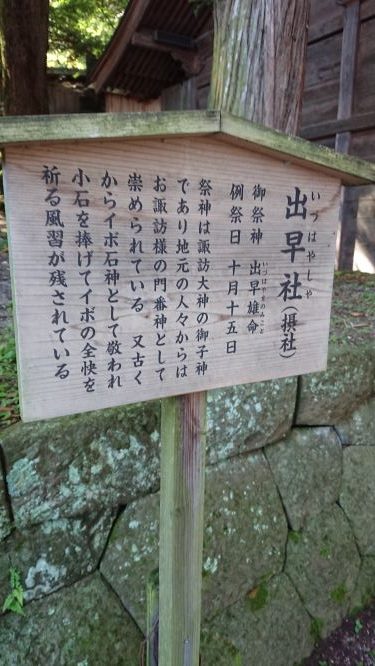 いづはやしゃ
出早社（摂社）
御祭神 出早雄命
いづはやおのみこと
例祭日 十月十五日
祭神は諏訪大神の御子神
であり地元の人々からは
お諏訪様の門番神として
崇められている 又古く
からイボ石神として敬われ
小石を捧げてイボの全快を
祈る風習が残されている